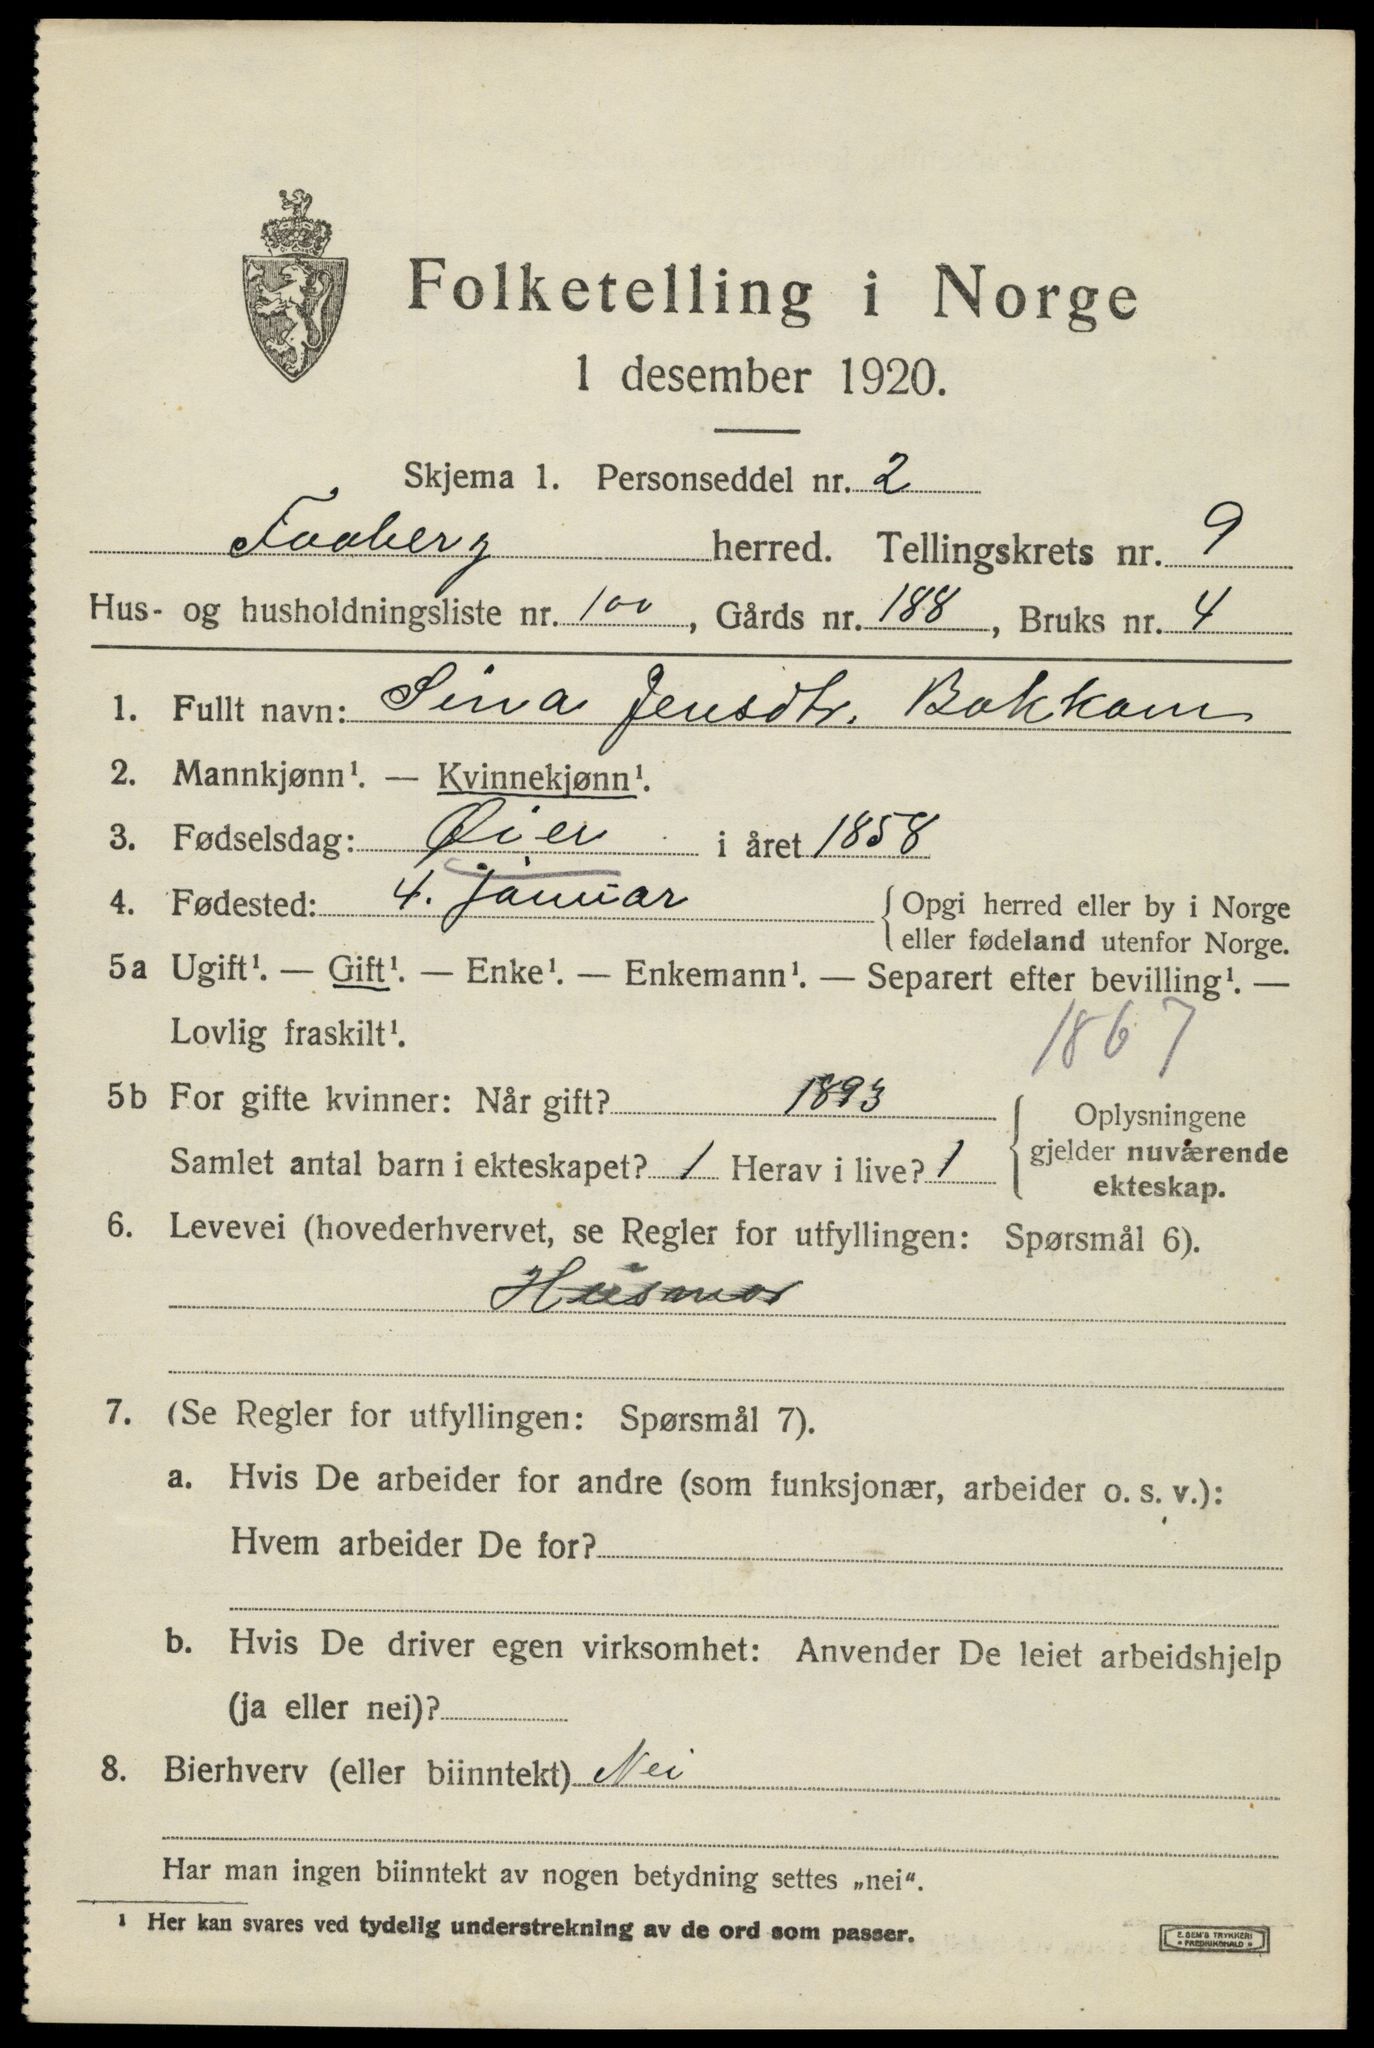 Folketelling i Norge
1 desember 1920.
Skjema 1. Personseddel nr. 2
Faaberg herred. Tellingskrets nr. 9
Hus- og husholdningsliste nr. 100, Gårds nr. 188, Bruks nr. 4
1. Fullt navn: Sina Jensdtr. Bakkom
2. Mannkjønn¹. — Kvinnekjønn¹.
3. Fødselsdag: Øier i året 1858
4. Fødested: 4. januar { Opgi herred eller by i Norge
eller fødeland utenfor Norge.
5a Ugift¹. — Gift¹. — Enke¹. — Enkemann¹. — Separert efter bevilling¹. —
Lovlig fraskilt¹. 1867
5b For gifte kvinner: Når gift? 1893 { Oplysningene
gjelder nuværende
Samlet antal barn i ekteskapet? 1 Herav i live? 1
ekteskap.
6. Levevei (hovederhvervet, se Regler for utfyllingen: Spørsmål 6).
Husmor
7. (Se Regler for utfyllingen: Spørsmål 7).
a. Hvis De arbeider for andre (som funksjonær, arbeider o. s. v.):
Hvem arbeider De for?
b. Hvis De driver egen virksomhet: Anvender De leiet arbeidshjelp
(ja eller nei)?
8. Bierhverv (eller biinntekt) Nei
Har man ingen biinntekt av nogen betydning settes „nei“.
¹ Her kan svares ved tydelig understrekning av de ord som passer.
E. SEM'S TRYKKERI
FREDRIKSHALD